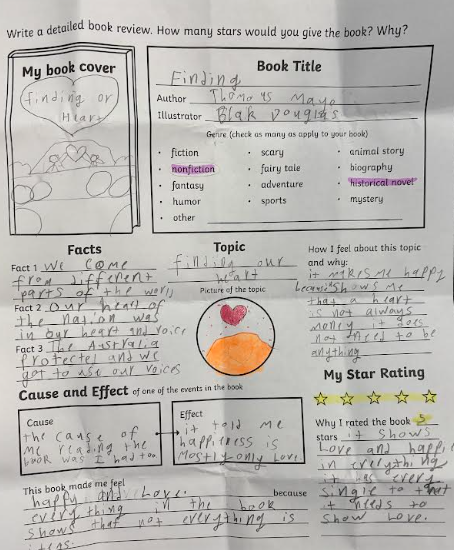 Write a detailed book review. How many stars would you give the book? Why?
My book cover
finding or
Heart
Book Title
Finding
Author Thomous Mayo
Illustrator Blak Douglas
Genre (check as many as apply to your book)
fiction
nonfiction
fantasy
humor
other
scary
fairy tale
adventure
sports
animal story
biography
historical novel
mystery
Facts
Fact 1 We come
from different
parts of the world
Fact 2 our heart of
the nation was
in our heart and voice
Fact 3 The Australia
protected and we
got to use our voices
Topic
finding our
heart
Picture of the topic
How I feel about this topic
and why:
it makes me happy
shows me
that a heart
is not always
money it does
not need to be
anything
My Star Rating
Why I rated the book 5
stars it shows
Love and
in
it has every
single to
it needs to
show Love.
Cause and Effect of one of the events in the book
Cause
the cause of
me reading the
book was I had too
Effect
it told me
happieness is
mostly only Love
This book made me feel
happy and Love. because
every thing in the book
shows that not everything is